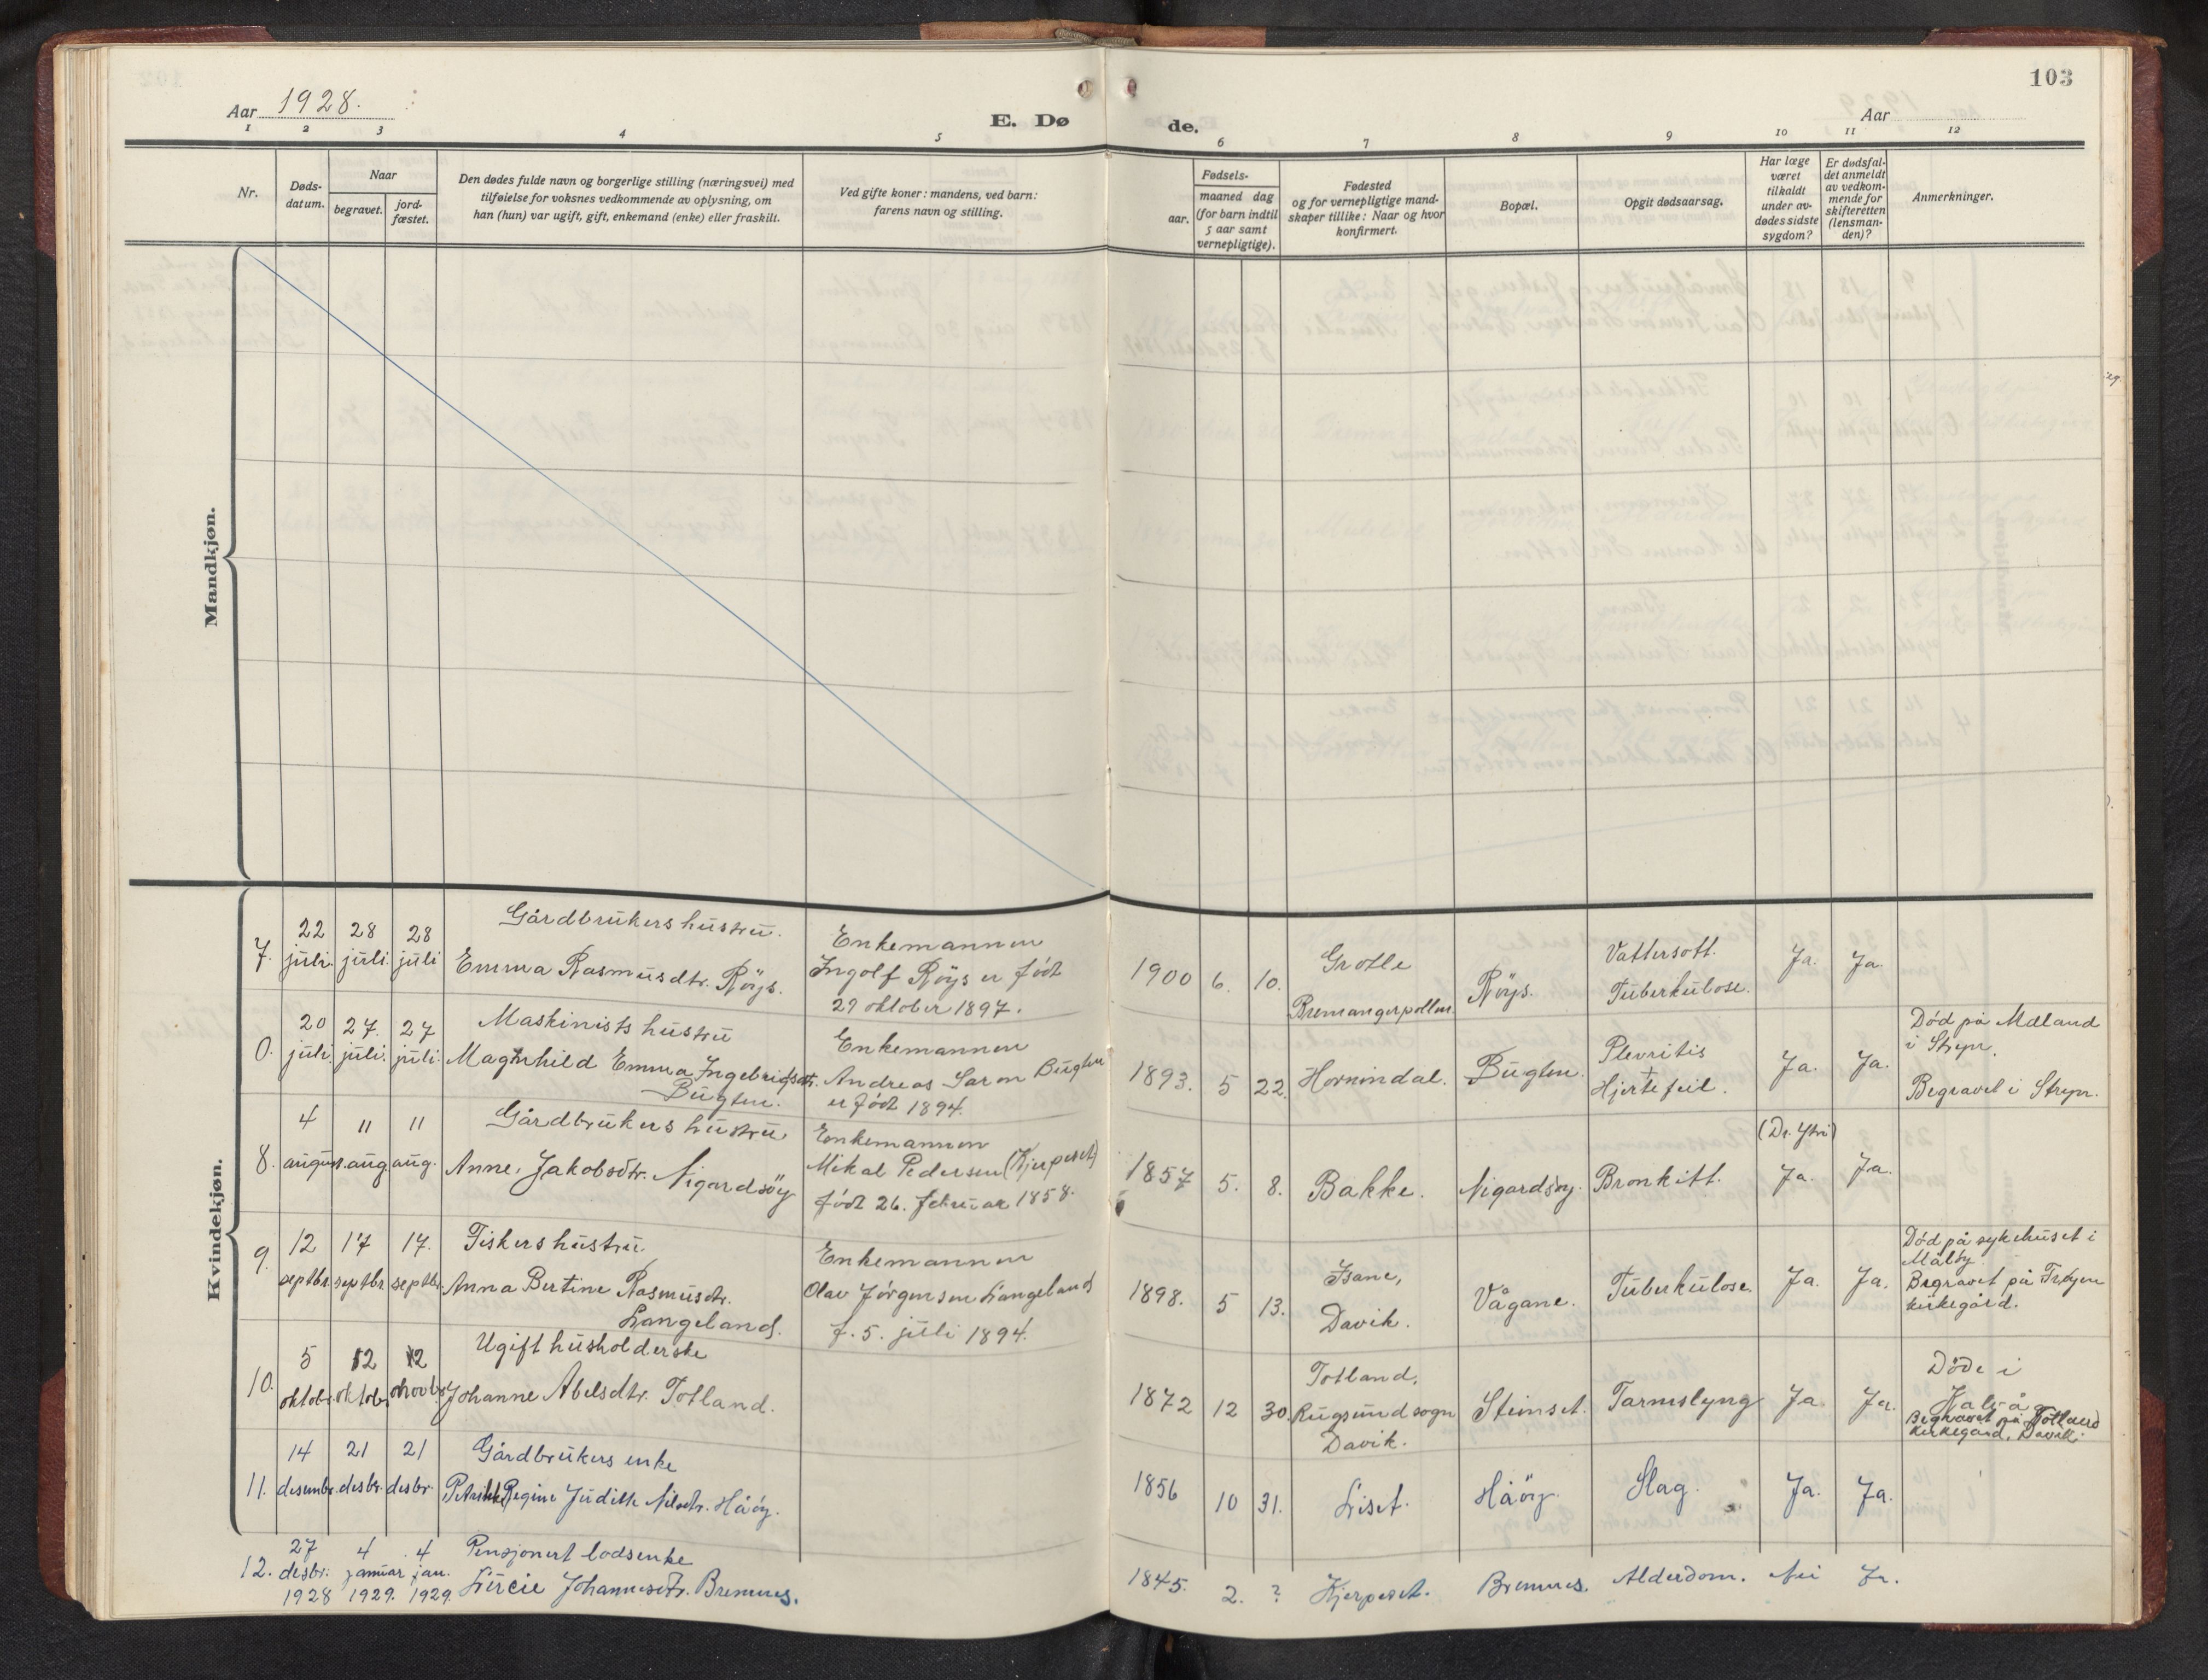 103
Aar 1928.
E. Dø de.
Aar
1 2 3 4 5 6 7 8 9 10 11 12
Nr.
Døds-
datum.
Naar
begravet.
jord-
fæstet.
Den dødes fulde navn og borgerlige stilling (næringsvei) med
tilføielse for voksnes vedkommende av oplysning, om
han (hun) var ugift, gift, enkemand (enke) eller fraskilt.
Ved gifte koner: mandens, ved barn:
farens navn og stilling.
Fødsels-
aar.
maaned dag
(for barn indtil
5 aar samt
vernepligtige).
Fødested
og for vernepligtige mand-
skaper tillike: Naar og hvor
konfirmert.
Bopæl.
Opgit dødsaarsag.
Har læge
været
tilkaldt
under av-
dødes sidste
sygdom?
Er dødsfal-
det anmeldt
av vedkom-
mende for
skifteretten
(lensman-
den)?
Anmerkninger.
Mandkjøn.
Kvindekjøn.
7.
22
juli.
28
juli.
28
juli
Gårdbrukers hustru.
Emma Rasmusdtr. Röys.
Enkemannen
Ingolf Röys er født
29 oktober 1897.
1900 6. 10.
Grotle
Bremangerpollen
Röys.
Vattersott.
Tuberkulose.
Ja. Ja.
0.
20
juli.
27.
juli.
27
juli.
Maskinists hustru
Magnhild Emma Ingebrigtsdtr.
Bugten.
Enkemannen
Andreas Bugten
er født 1894.
1893. 5 22.
Hornindal.
Bugten.
Plevritis
+
Hjertefeil.
Ja. Ja.
Död på
i Stryn.
Begravet i Stryn.
8.
4
august.
11
aug.
11
aug.
Gårdbrukers hustru
Anne, Jakobsdtr. Nigardsöy
Enkemannen
Mikal Pedersen (Kjerpeset)
født 26. februar 1858.
1857 5. 8.
Bakke.
Nigardsöy.
Bronkitt.
(Dr. Ytri)
Ja. Ja.
9.
12
septbr.
17
septbr.
17.
septbr.
Fiskers hustru
Anna Bertine Rasmusdtr.
Langeland.
Enkemannen
Olav Jörgensen Langeland
f. 5. juli 1894.
1898. 5 13.
Isane,
Davik.
Vågane.
Tuberkulose.
Ja. Ja.
Död på sykehuset i
Måløy.
Begravet på
kirkegård.
10.
5
oktobr.
12
oktobr.
12
Ugift husholderske
Johanne Abelsdtr. Totland.
1872 12 30.
Totland,
Rugsund sogn
Davik.
Steinset.
Tarmslyng
Ja. Ja.
Döde i
Kalvåg
Begravet på Totland
kirkegård, Davik.
11.
14
desembr.
21
desbr.
21
desbr.
Gårdbrukers enke
Regine Judith Nilsdtr. Håöy.
1856 10 31.
Liset.
Håöy.
Slag.
Ja. Ja.
12.
27
desbr.
1928
4
januar
1929.
4
jan.
1929.
Pensjonert lodsenke
Lucie Johannesdtr. Bremnes.
1845. 2. ?
Kjerpeset.
Bremnes.
Alderdom.
Nei Ja.